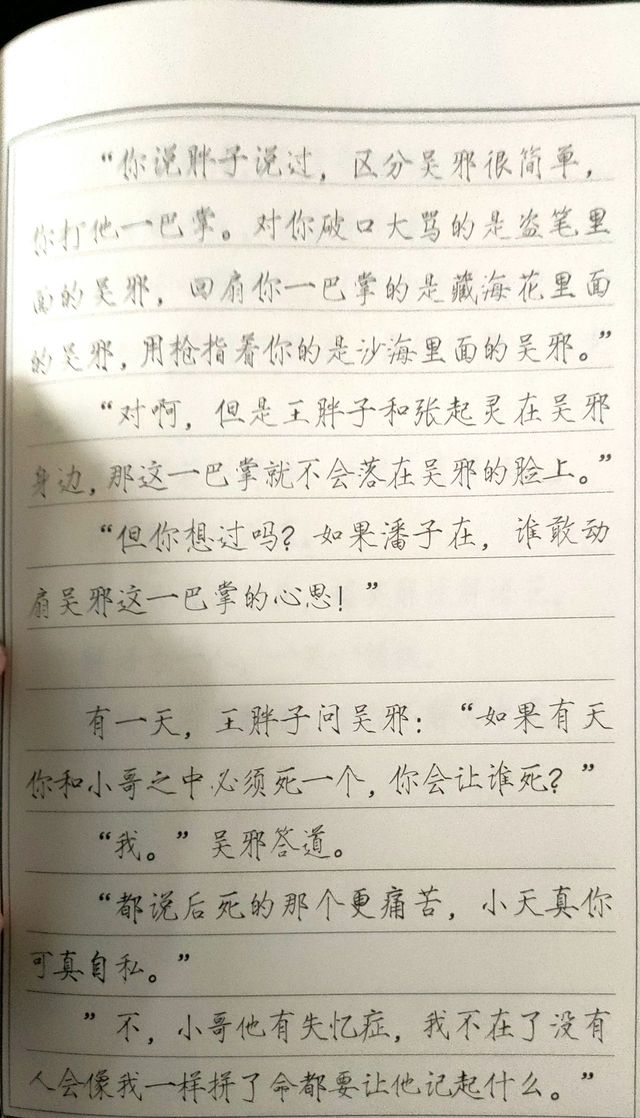 “你说胖子说过，区分吴邪很简单，
你打他一巴掌。对你破口大骂的是盗笔里
面的吴邪，回扇你一巴掌的是藏海花里面
的吴邪，用枪指着你的是沙海里面的吴邪。”
“对啊，但是王胖子和张起灵在吴邪
身边，那这一巴掌就不会落在吴邪的脸上。”
“但你想过吗？如果潘子在，谁敢动
扇吴邪这一巴掌的心思！”
有一天，王胖子问吴邪：“如果有天
你和小哥之中必须死一个，你会让谁死？”
“我。”吴邪答道。
“都说后死的那个更痛苦，小天真你
可真自私。”
”不，小哥他有失忆症，我不在了没有
人会像我一样拼了命都要让他记起什么。”